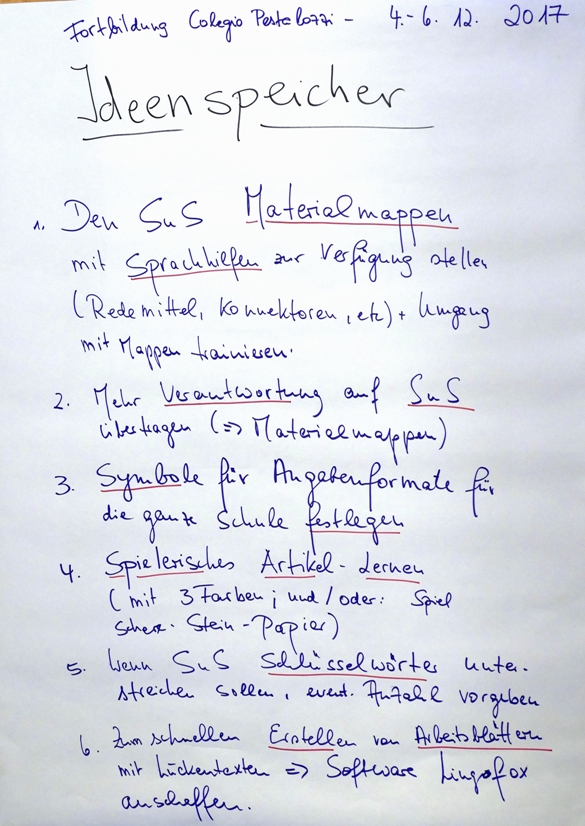 Fortbildung Colegio Pestalozzi - 4.-6. 12. 2017
Ideenspeicher
1. Den SuS Materialmappen
mit Sprachhilfen zur Verfügung stellen
(Redemittel, Konnektoren, etc) + Umgang
mit Mappen trainieren.
2. Mehr Verantwortung auf SuS
übertragen (=> Materialmappen)
3. Symbole für Angabenformate für
die ganze Schule festlegen
4. Spielerisches Artikel-Lernen
(mit 3 Farben; und/oder: Spiel
Schere-Stein-Papier)
5. Wenn SuS Schlüsselwörter unter-
streichen sollen, event. Anzahl vorgeben
6. Zum schnellen Erstellen von Arbeitsblättern
mit Lückentexten => Software Lingofox
anschaffen.